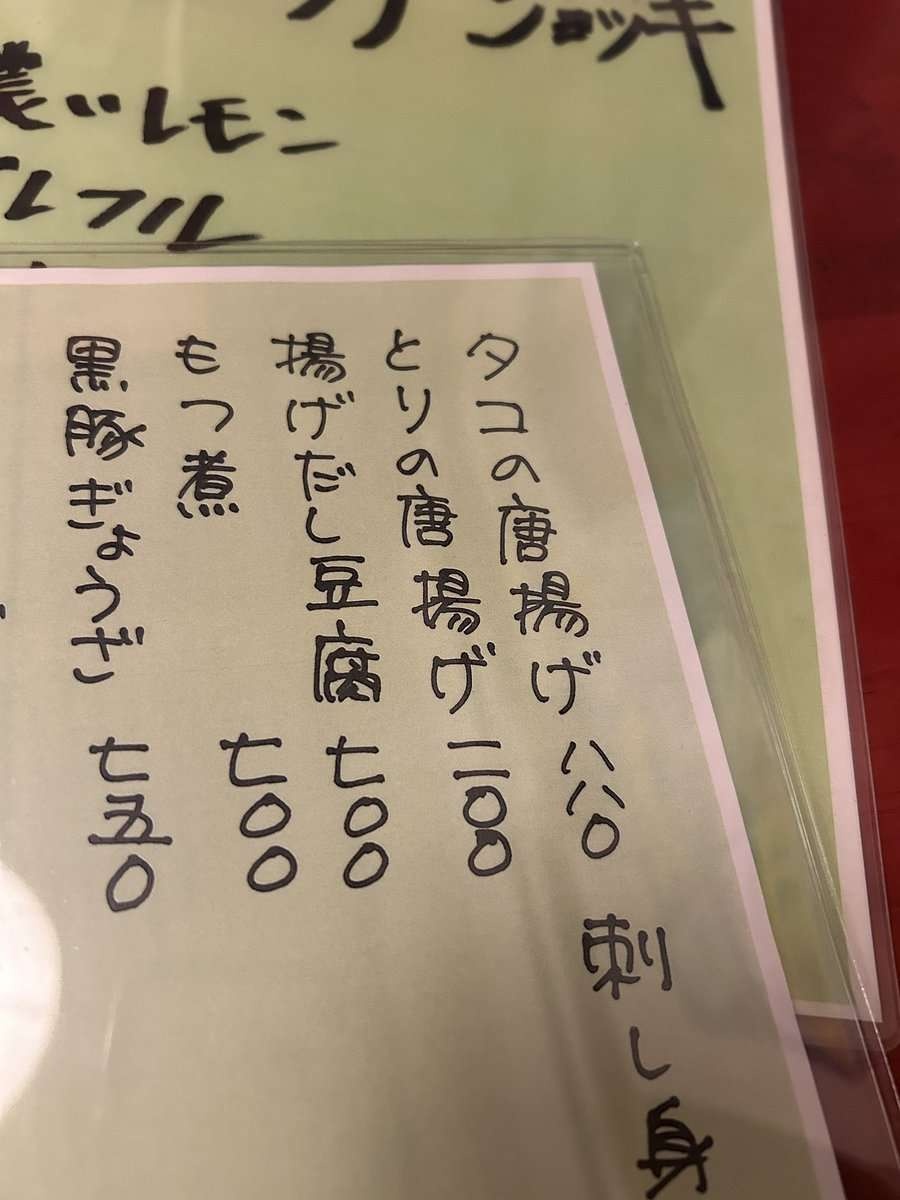 ジョッキ
濃いレモン
レフル
刺し身
タコの唐揚げ 八八〇
とりの唐揚げ
揚げだし豆腐 七〇〇
もつ煮 七〇〇
黒豚ぎょうざ 七五〇